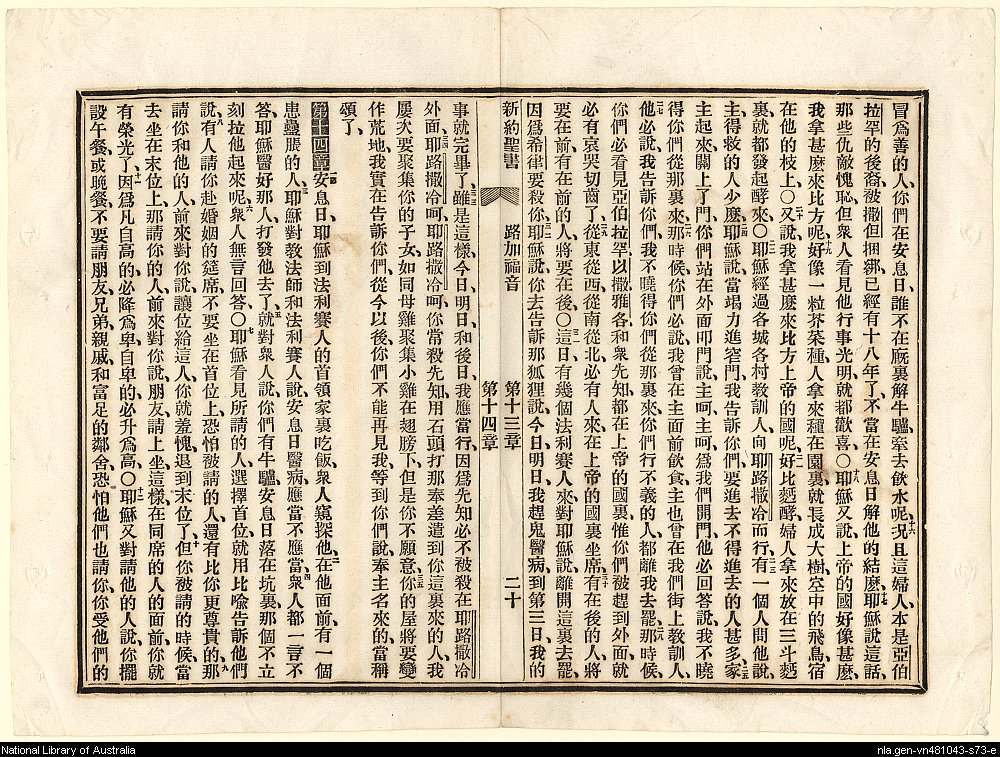 冒爲善的人、你們在安息日、誰不在廐裏解牛驢牽去飲水呢、況且這婦人本是亞伯
拉罕的後裔、被撒但捆綁、已經有十八年了、不當在安息日解他的結麼、耶穌說這話、
那些仇敵愧恥、但衆人看見他行事光明、就都歡喜〇耶穌又說、上帝的國好像甚麼、
我拿甚麼來比方呢、好像一粒芥菜種、人拿來種在園裏、就長成大樹、空中的飛鳥宿
在他的枝上〇又說、我拿甚麼來比方上帝的國呢、好比麪酵、婦人拿來放在三斗麪
裏、就都發起酵來〇耶穌經過各城各村教訓人、向耶路撒冷而行、有一個人問他說、
主、得救的人少麼、耶穌說、當竭力進窄門、我告訴你們、要進去不得進去的人甚多、家
主起來關上了門、你們站在外面叩門說、主呵、主呵、爲我們開門、他必回答說、我不曉
得你們從那裏來、那時候你們必說、我曾在主面前飲食、主也曾在我們街上教訓人、
他必說、我告訴你們、我不曉得你們從那裏來、你們行不義的人、都離我去罷、那時候、
你們必看見亞伯拉罕、以撒、雅各、和衆先知、都在上帝的國裏、惟你們被趕到外面、就
必有哀哭切齒了、從東從西從南從北、必有人來在上帝的國裏坐席、有在後的人將
要在前、有在前的人將要在後〇這日有幾個法利賽人來、對耶穌說、離開這裏去罷、
因爲希律要殺你、耶穌說、你去告訴那狐狸說、今日、明日、我趕鬼醫病、到第三日、我的
新約聖書 路加福音 第十三章 第十四章 二十
事就完畢了、雖是這樣、今日、明日、和後日、我應當行、因爲先知必不被殺在耶路撒冷
外面、耶路撒冷呵、耶路撒冷呵、你常殺先知、用石頭打那奉差遣到你這裏來的人、我
屢次要聚集你的子女、如同母雞聚集小雞在翅膀下、但是你不願意、你的屋將要變
作荒地、我實在告訴你們、從今以後你們不能再見我、等到你們說、奉主名來的當稱
頌了、
第十四章 安息日、耶穌到法利賽人的首領家裏吃飯、衆人窺探他、在他面前有一個
患蠱脹的人、耶穌對教法師和法利賽人說、安息日醫病應當不應當、衆人都一言不
答、耶穌醫好那人、打發他去了、就對衆人說、你們有牛驢、安息日落在坑裏、那個不立
刻拉他起來呢、衆人無言回答〇耶穌看見所請的人選擇首位、就用比喩告訴他們
說、有人請你赴婚姻的筵席、不要坐在首位上、恐怕被請的人、還有比你更尊貴的、那
請你和他的人、前來對你說、讓位給這人、你就羞愧退到末位了、但你被請的時候、當
去坐在末位上、那請你的人前來對你說、朋友請上坐、這樣在同席的人的面前、你就
有榮光了、因爲凡自高的必降爲卑、自卑的必升爲高〇耶穌又對請他的人說、你擺
設午餐、或晚餐、不要請朋友兄弟親戚和富足的鄰舍、恐怕他們也請你、你受他們的
National Library of Australia
nla.gen-vn481043-s73-e